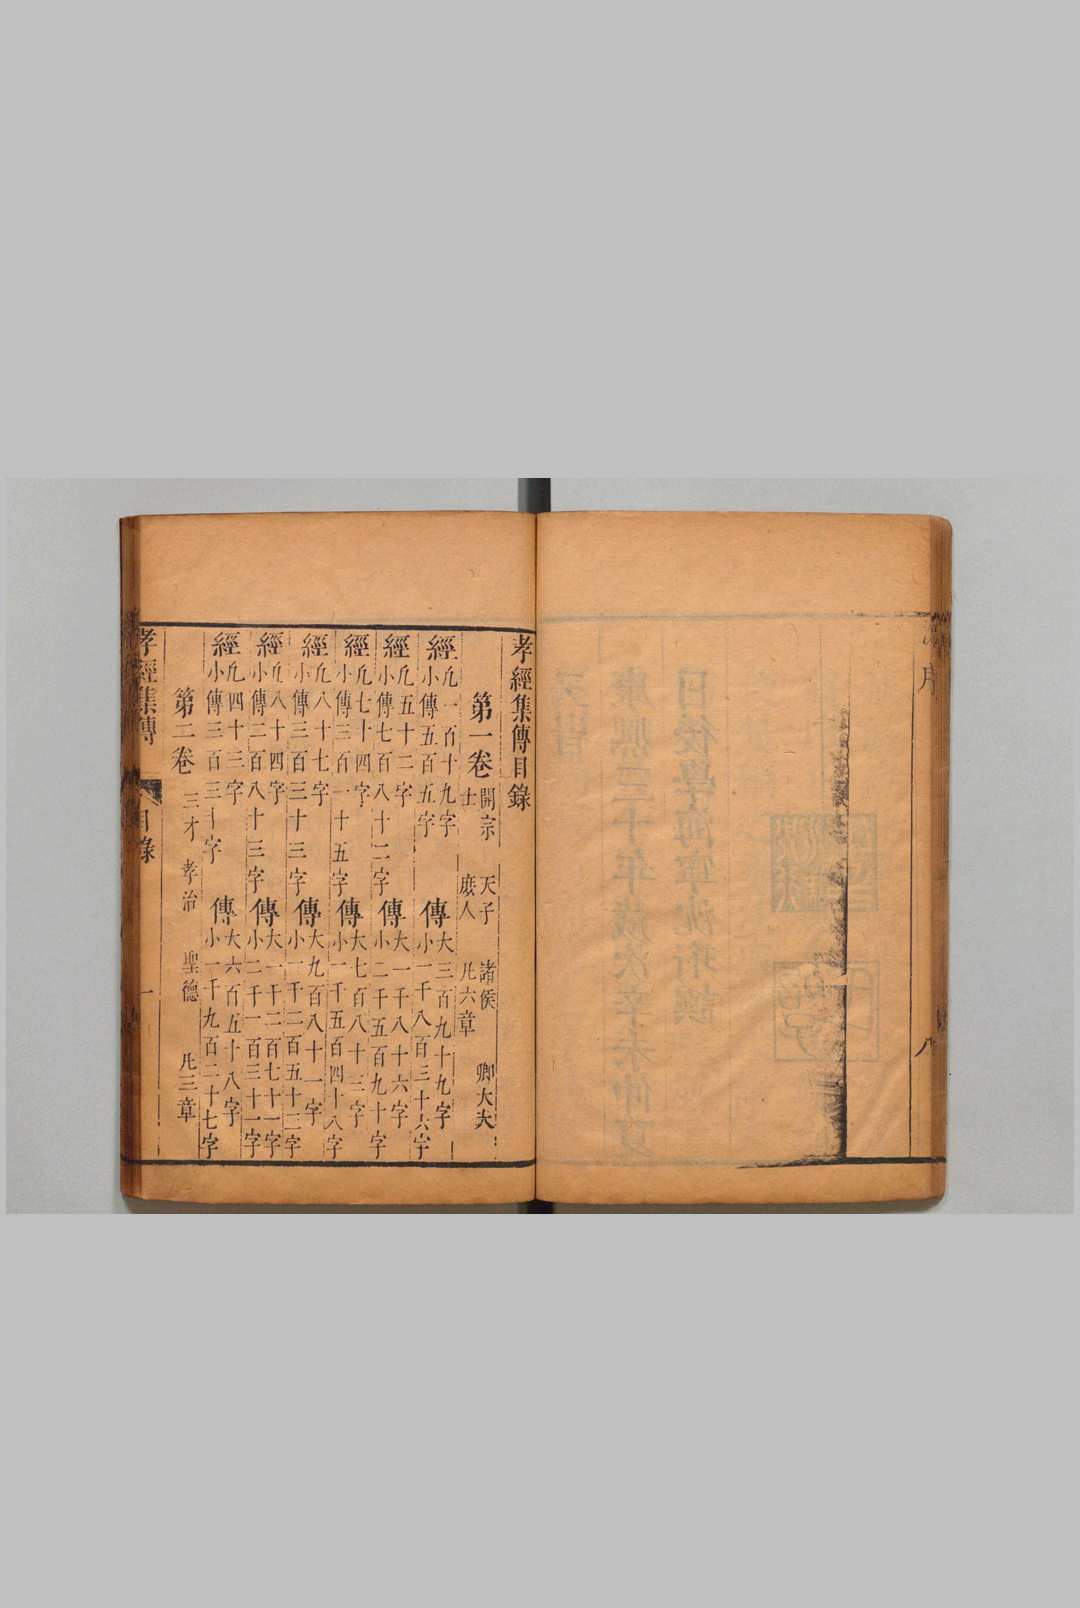 序 八
孝經集傳目錄
第一卷 開宗 天子 諸侯 卿大夫
士 庶人 凡六章
經 凡一百十九字 小傳五百五字 傳 大三百九十九字 小一千八百三十六字
經 凡五十二字 小傳七百八十二字 傳 大一千八十六字 小二千五百九十字
經 凡七十四字 小傳三百一十五字 傳 大七百八十三字 小一千五百四十八字
經 凡八十七字 小傳三百三十三字 傳 大九百八十一字 小一千二百五十二字
經 凡八十四字 小傳二百八十三字 傳 大一千二百七十一字 小二千一百三十一字
經 凡四十三字 小傳三百三十字 傳 大六百五十八字 小一千九百二十七字
第二卷 三才 孝治 聖德 凡三章
孝經集傳 目錄 一